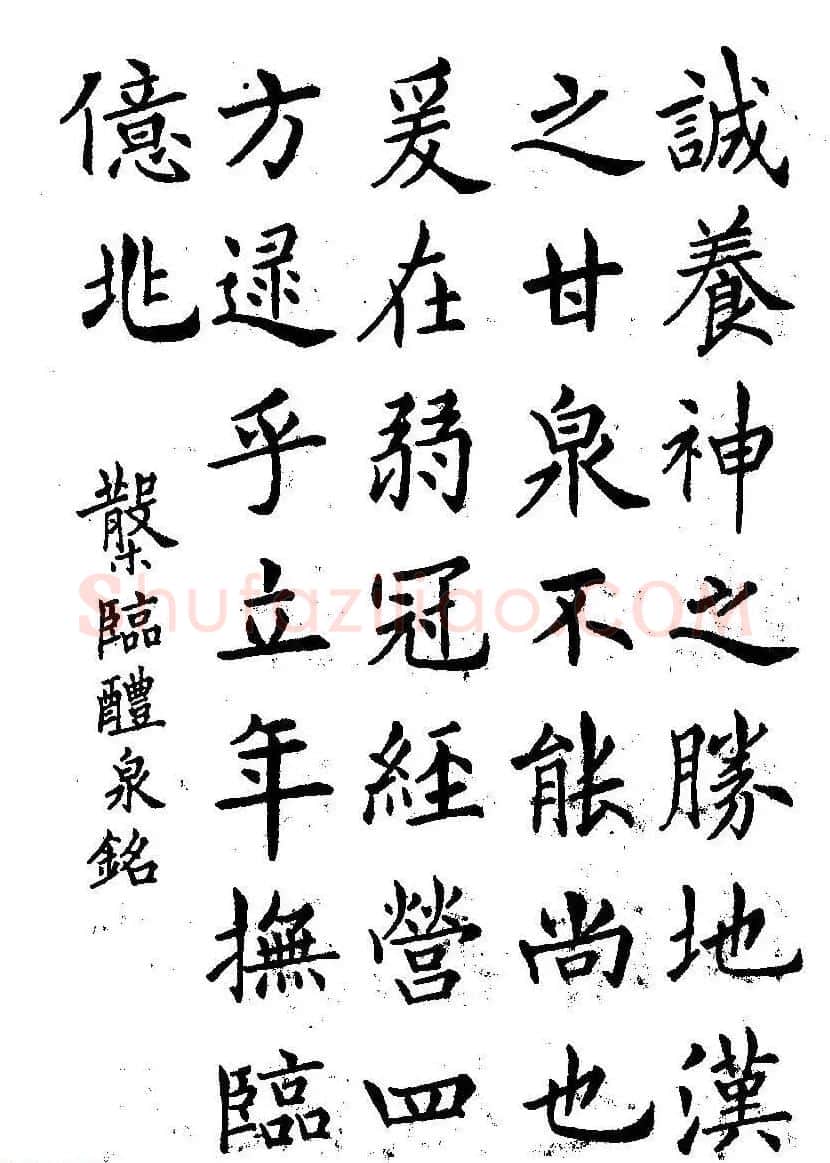 誠養神之勝地漢
之甘泉不能尚也
爰在弱冠經營四
方逮乎立年撫臨
億兆
臨醴泉銘
Shufaziliao.COM